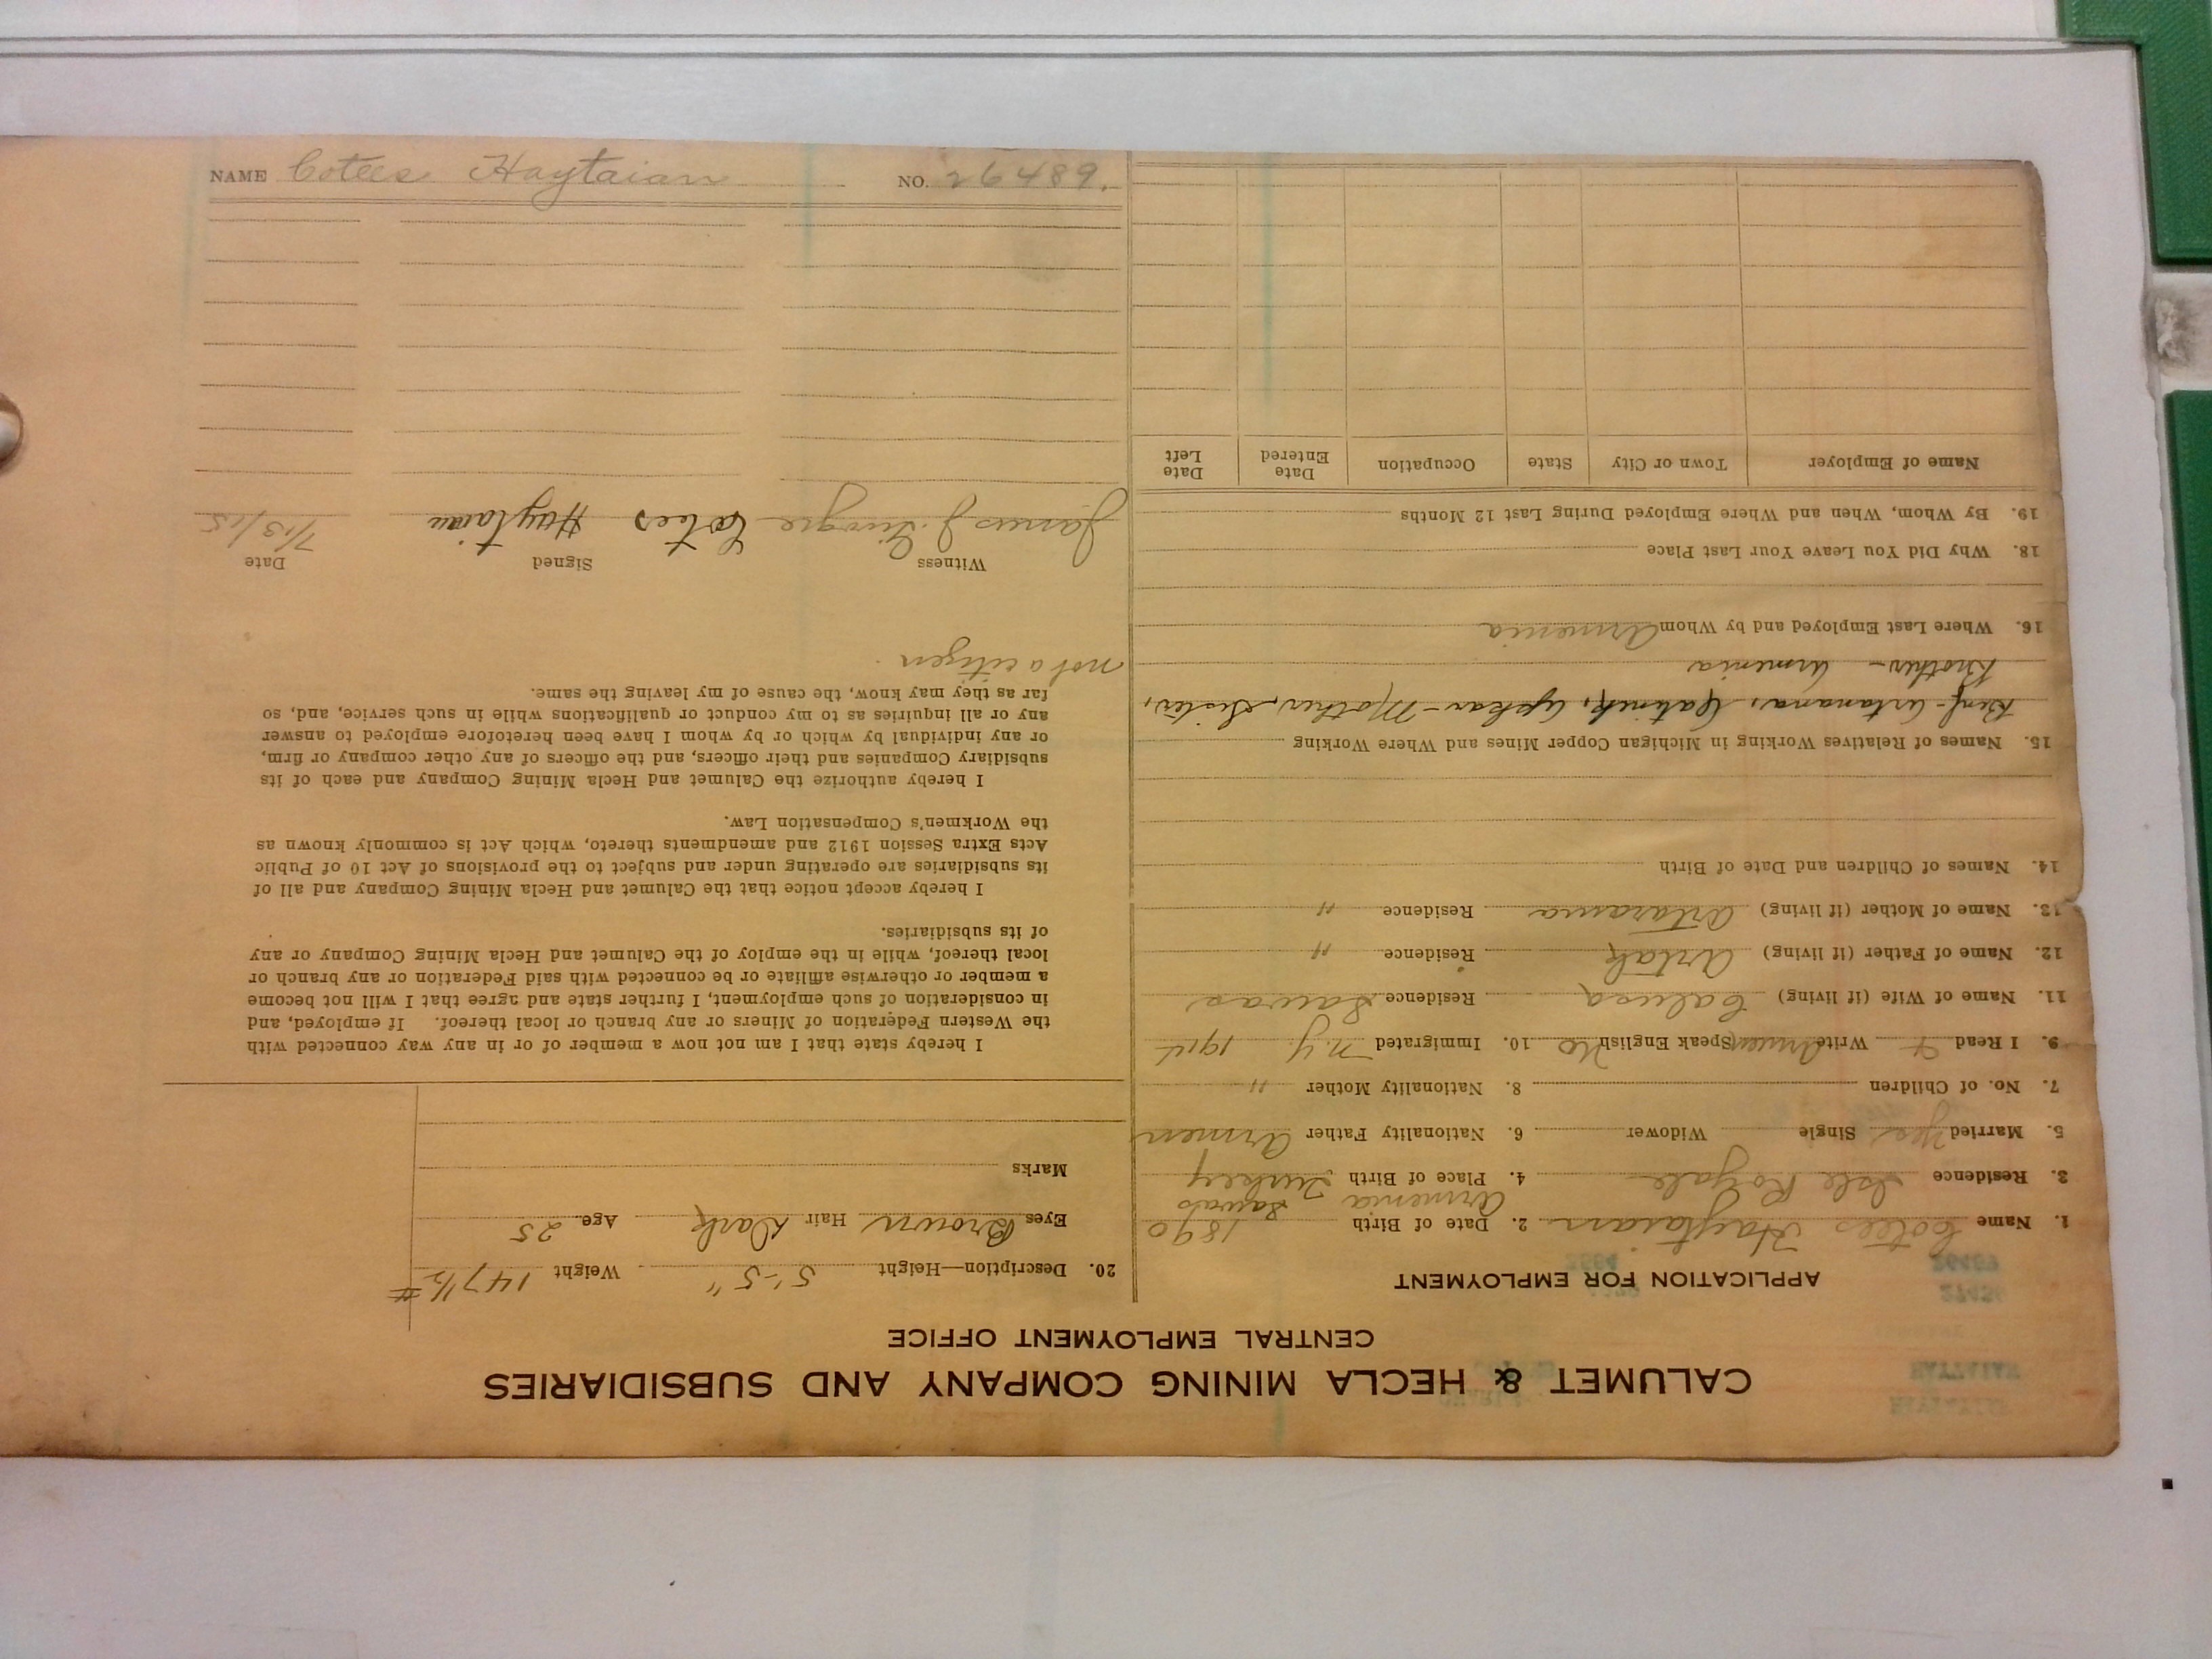 CALUMET & HECLA MINING COMPANY AND SUBSIDIARIES
CENTRAL EMPLOYMENT OFFICE
APPLICATION FOR EMPLOYMENT
1. Name Cotees Haytaian 2. Date of Birth 1890
Armenia Sawas
3. Residence Isle Royale 4. Place of Birth Turkey
5. Married Yes Single Widower 6. Nationality Father Armen
7. No. of Children 8. Nationality Mother "
9. I Read Write Armen Speak English No 10. Immigrated N.Y. 1914
11. Name of Wife (if living) Residence Sawas
12. Name of Father (if living) Artak Residence "
13. Name of Mother (if living) Residence "
14. Names of Children and Date of Birth
15. Names of Relatives Working in Michigan Copper Mines and Where Working
Mother, Sister,
Brother - Armenia
16. Where Last Employed and by Whom Armenia
18. Why Did You Leave Your Last Place
19. By Whom, When and Where Employed During Last 12 Months
Name of Employer Town or City State Occupation Date Entered Date Left
20. Description—Height 5'-5" Weight 147 1/2 #
Eyes Brown Hair Dark Age 25
Marks
I hereby state that I am not now a member of or in any way connected with
the Western Federation of Miners or any branch or local thereof. If employed, and
in consideration of such employment, I further state and agree that I will not become
a member or otherwise affiliate or be connected with said Federation or any branch or
local thereof, while in the employ of the Calumet and Hecla Mining Company or any
of its subsidiaries.
I hereby accept notice that the Calumet and Hecla Mining Company and all of
its subsidiaries are operating under and subject to the provisions of Act 10 of Public
Acts Extra Session 1912 and amendments thereto, which Act is commonly known as
the Workmen's Compensation Law.
I hereby authorize the Calumet and Hecla Mining Company and each of its
subsidiary Companies and their officers, and the officers of any other company or firm,
or any individual by which or by whom I have been heretofore employed to answer
any or all inquiries as to my conduct or qualifications while in such service, and, so
far as they may know, the cause of my leaving the same.
not a citizen.
Witness Signed Date
James J. Cotees Haytaian 7/13/15
NAME Cotees Haytaian NO. 26489.